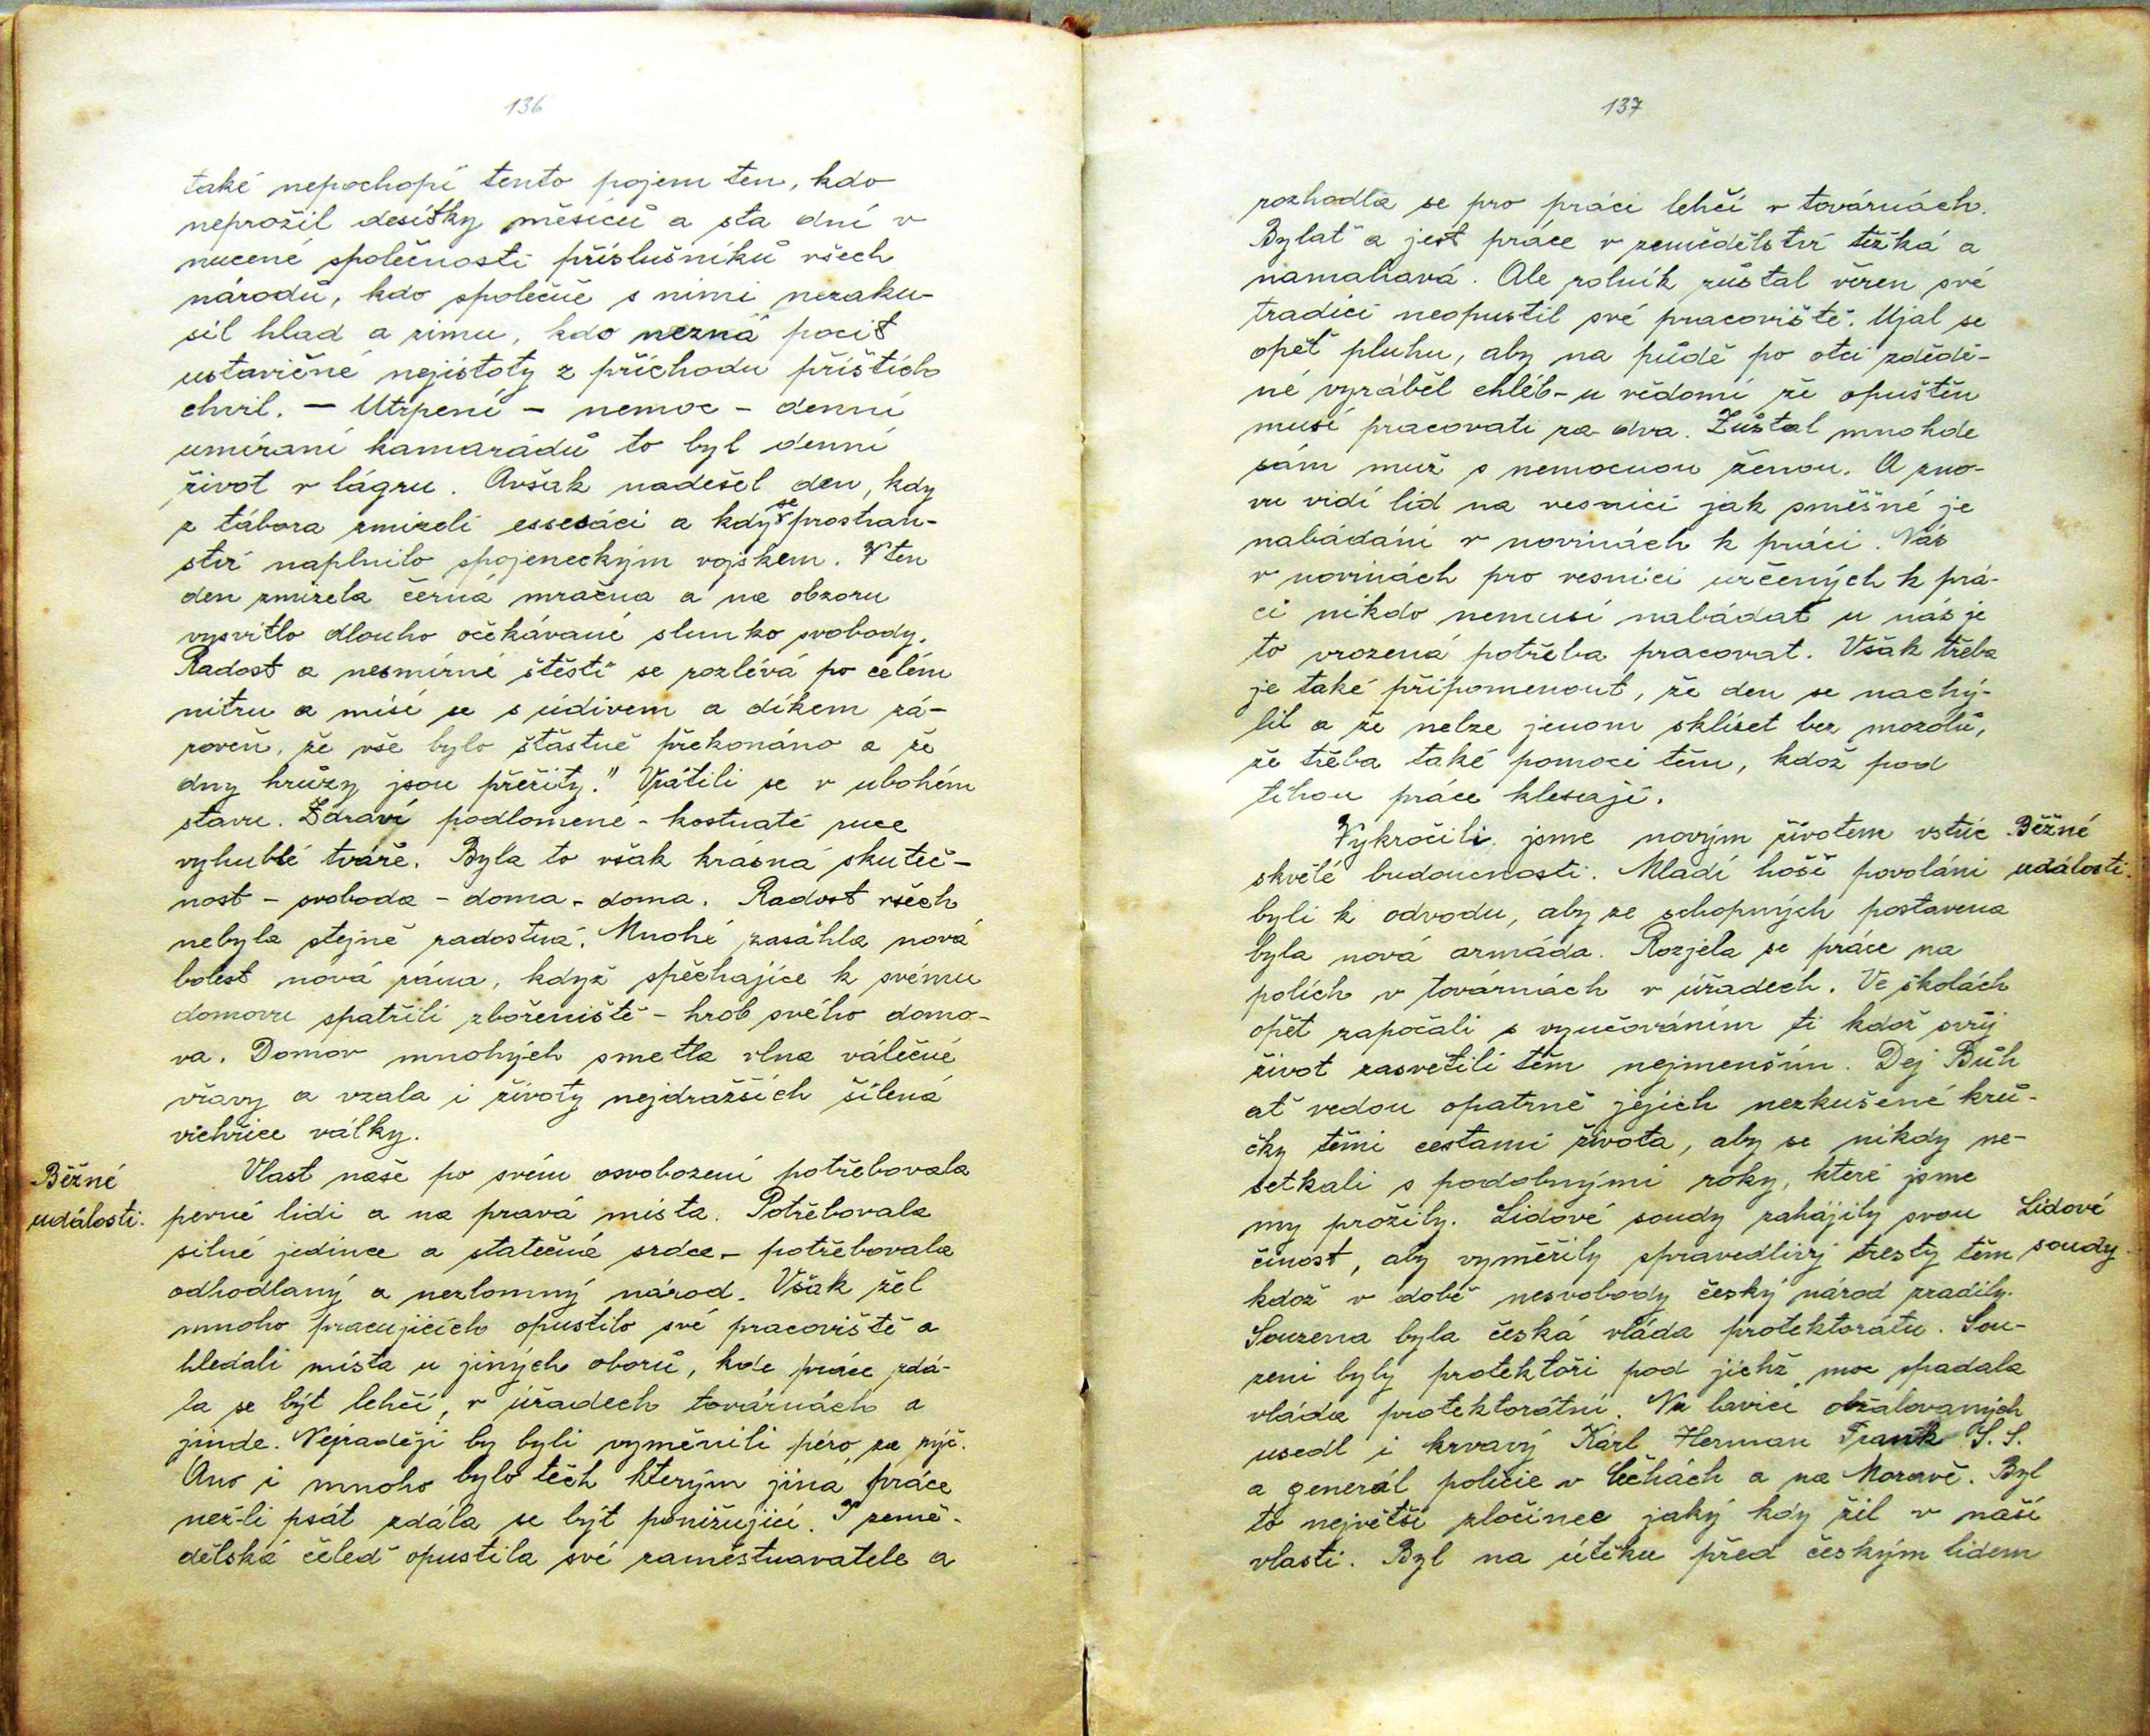 136
také nepochopí tento pojem ten, kdo
neprožil desítky měsíců a sta dní v
nucené společnosti příslušníků všech
národů, kdo společně s nimi nezaku-
sil hlad a zimu, kdo nezná pocit
ustavičné nejistoty z příchodu příštích
chvil. — Utrpení – nemoc – denní
umírání kamarádů to byl denní
život v lágru. Avšak nadešel den, kdy
z tábora zmizeli essesáci a kdy se prostran-
ství naplnilo spojeneckým vojskem. V ten
den zmizela černá mračna a na obzoru
vysvitlo dlouho očekávané slunko svobody.
Radost a nesmírné štěstí se rozlévá po celém
nitru a mísí se s údivem a díkem zá-
roveň, že vše bylo šťastně překonáno a že
dny hrůzy jsou přežity." Vrátili se v ubohém
stavu. Zdraví podlomené – kostnaté ruce
vyhublé tváře. Byla to však krásná skuteč-
nost – svoboda – doma – doma. Radost všech
nebyla stejně radostná. Mnohé zasáhla nová
bolest nová rána, když spěchajíce k svému
domovu spatřili zbořeniště – hrob svého domo-
va. Domov mnohých smetla vlna válečné
vřavy a vzala i životy nejdražších šílená
vichřice války.
Běžné
události.
Vlast naše po svém osvobození potřebovala
pevné lidi a na pravá místa. Potřebovala
silné jedince a statečná srdce – potřebovala
odhodlaný a nezlomný národ. Však žel
mnoho pracujících opustilo své pracoviště a
hledali místa u jiných oborů, kde práce zdá-
la se být lehčí, v úřadech továrnách a
jinde. Nejraději by byli vyměnili péro za rýč.
Ano i mnoho bylo těch kterým jiná práce
než-li psát zdála se být ponižující. I země-
dělská čeleď opustila své zaměstnavatele a
137
rozhodla se pro práci lehčí v továrnách.
Bylať a jest práce v zemědělství těžká a
namahavá. Ale rolník zůstal věren své
tradici neopustil své pracoviště. Ujal se
opět pluhu, aby na půdě po otci zdědě-
né vyráběl chléb – u vědomí že opuštěn
musí pracovati za dva. Zůstal mnohde
sám muž s nemocnou ženou. A zno-
vu vidí lid na vesnici jak směšné je
nabádání v novinách k práci. Nás
v novinách pro vesnici určených k prá-
ci nikdo nemusí nabádat u nás je
to vrozená potřeba pracovat. Však třeba
je také připomenout, že den se nachý-
lil a že nelze jenom sklíset bez mozolů,
že třeba také pomoci těm, kdož pod
tíhou práce klesají.
Vykročili jsme novým životem vstříc
skvělé budoucnosti. Mladí hoši povoláni
Běžné
události.
byli k odvodu, aby ze schopných postavena
byla nová armáda. Rozjela se práce na
polích v továrnách v úřadech. Ve školách
opět započali s vyučováním ti kdož svůj
život zasvětili těm nejmenším. Dej Bůh
ať vedou opatrně jejich nezkušené krů-
čky těmi cestami života, aby se nikdy ne-
setkali s podobnými roky, které jsme
my prožily. Lidové soudy zahájily svou
činost, aby vyměřily spravedlivý tresty těm
Lidové
soudy.
kdož v době nesvobody český národ zradily.
Souzena byla česká vláda protektorátu. Sou-
zeni byly protektoři pod jichž moc spadala
vláda protektorátní. Na lavici obžalovaných
usedl i krvavý Kárl Herman Frank S.S.
a generál policie v Čěchách a na Moravě. Byl
to největší zločinec jaký kdy žil v naší
vlasti. Byl na útěku před českým lidem